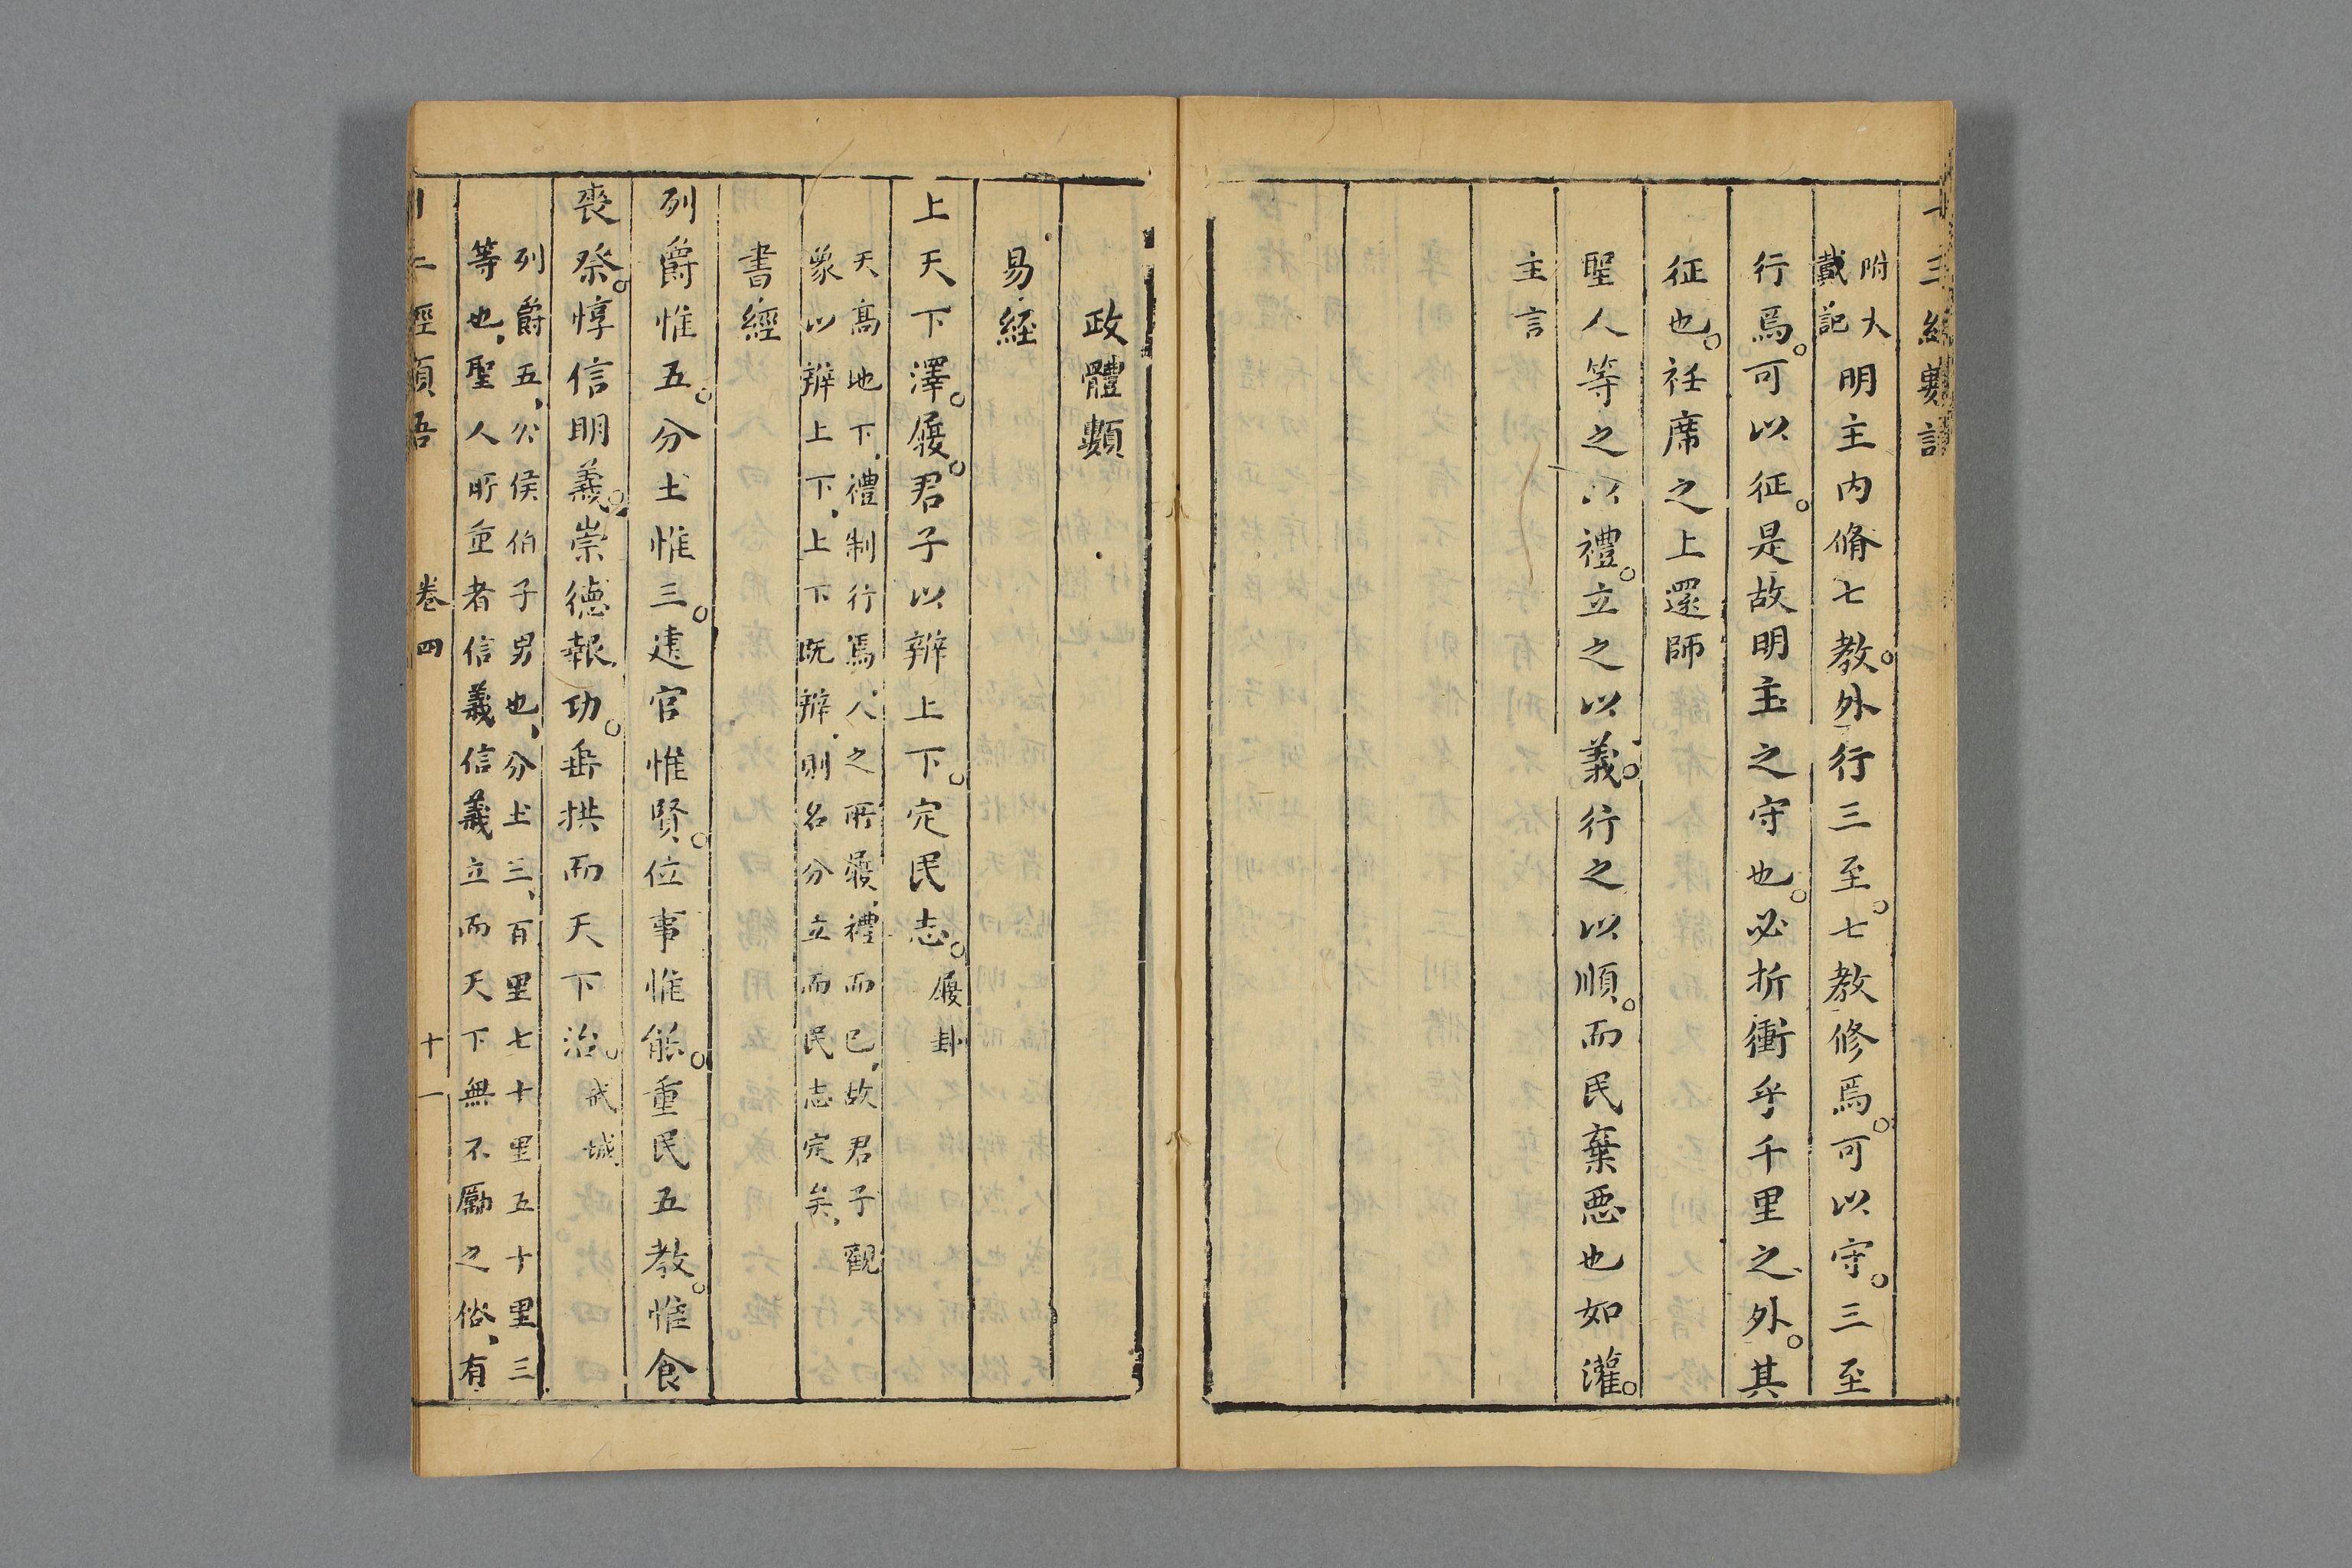 十三經類語
附大
戴記
明主内脩七教。外行三至。七教修焉。可以守。三至
行焉。可以征。是故明主之守也。必折衝乎千里之外。其
征也。衽席之上還師
聖人等之以禮。立之以義。行之以順。而民棄惡也如灌。
主言
政體類
易經
上天下澤。履。君子以辨上下。定民志。履卦
天高地下、禮制行焉、人之所履、禮而已、故君子觀
象以辨上下、上下既辨、則名分立而民志定矣、
書經
列爵惟五。分土惟三。建官惟賢。位事惟能。重民五教。惟食
喪祭。惇信明義。崇德報功。垂拱而天下治。武城
列爵五、公侯伯子男也、分土三、百里七十里五十里三
等也、聖人所重者信義信義立而天下無不勵之俗、有
十三經類語 卷四 十一